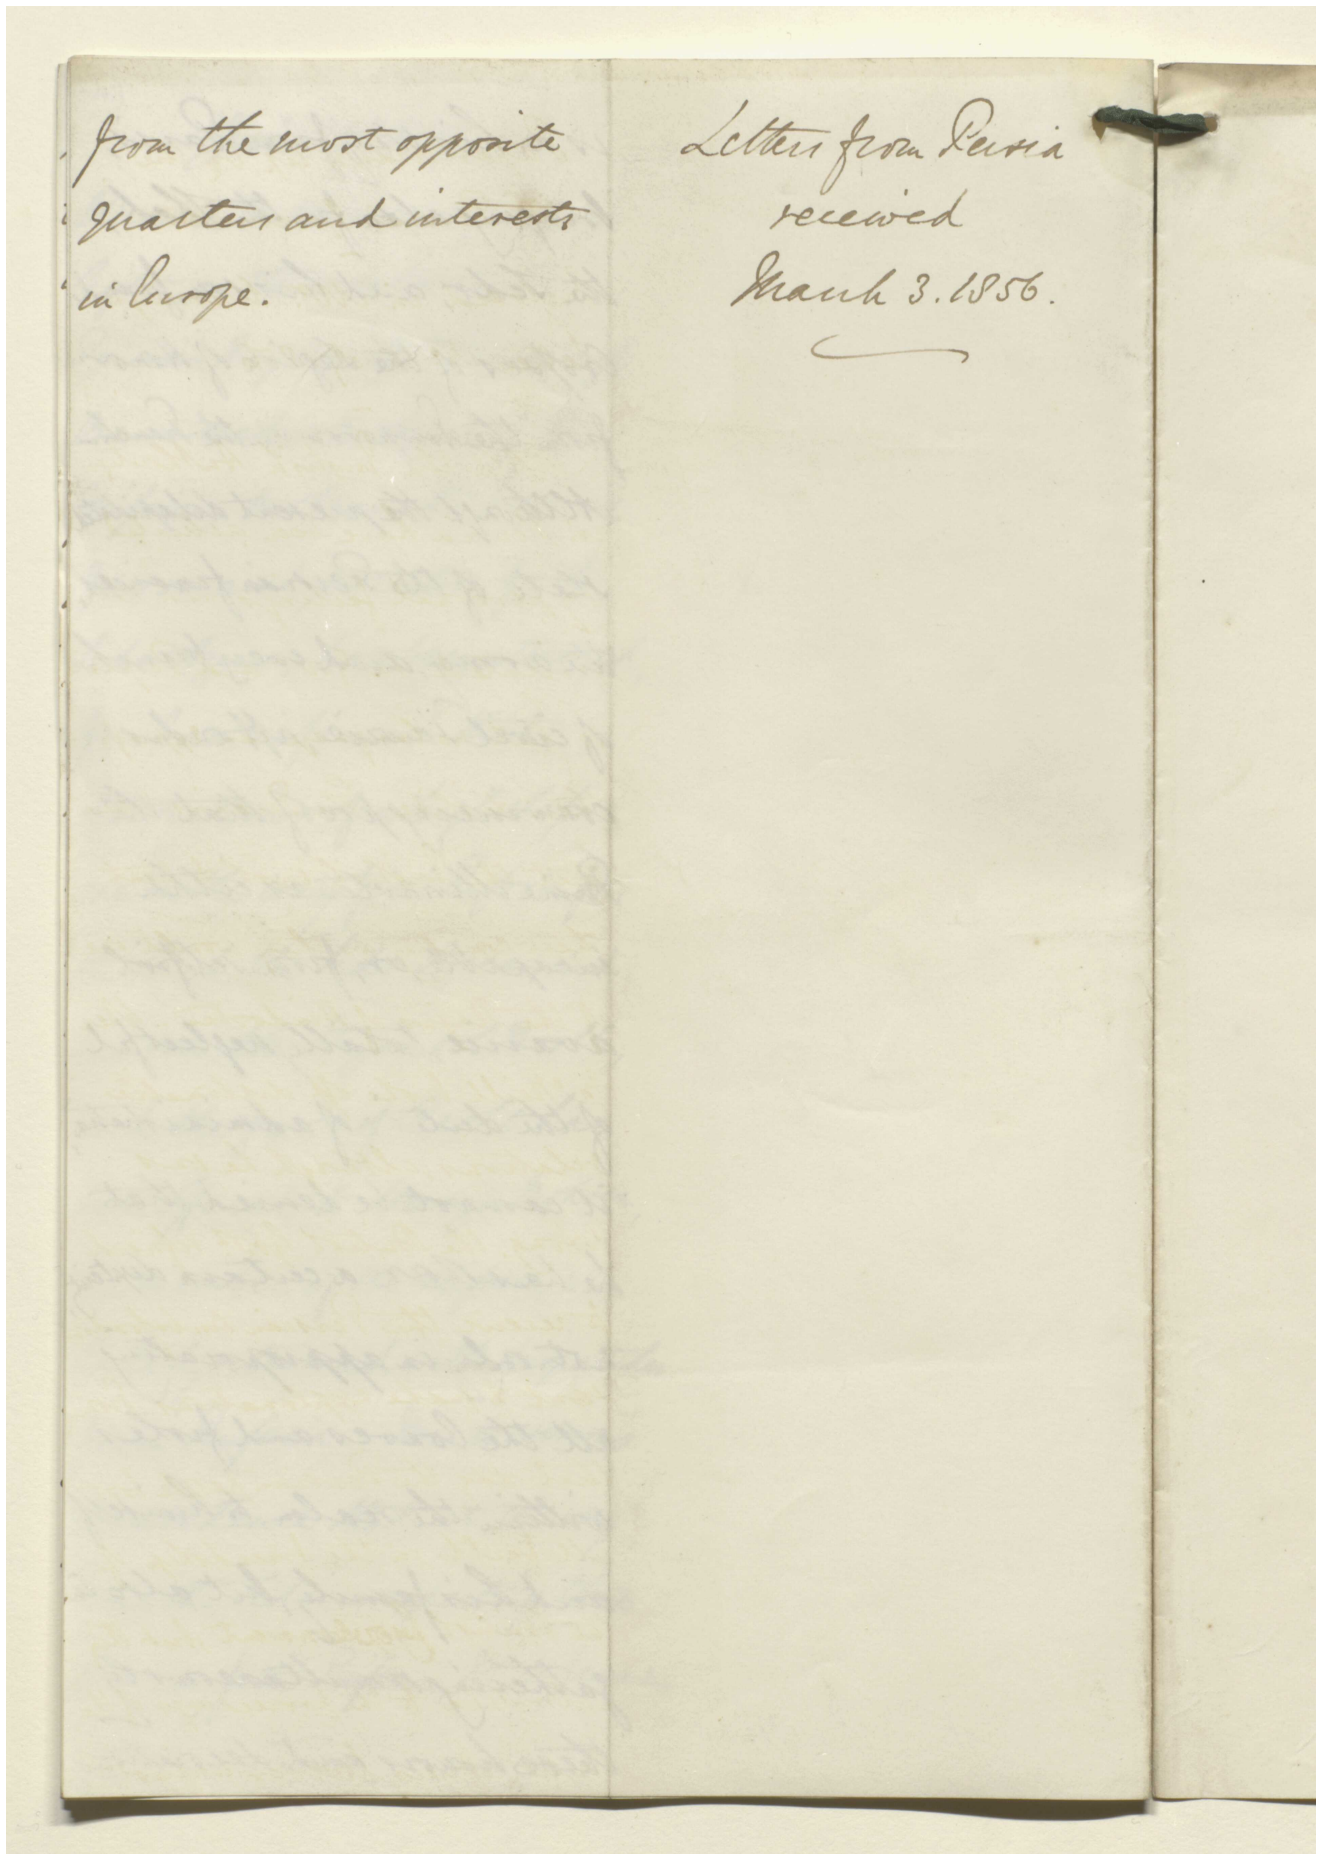 from the most opposite
quarters and interests
in Europe.
Letters from Persia
received
March 3. 1856.